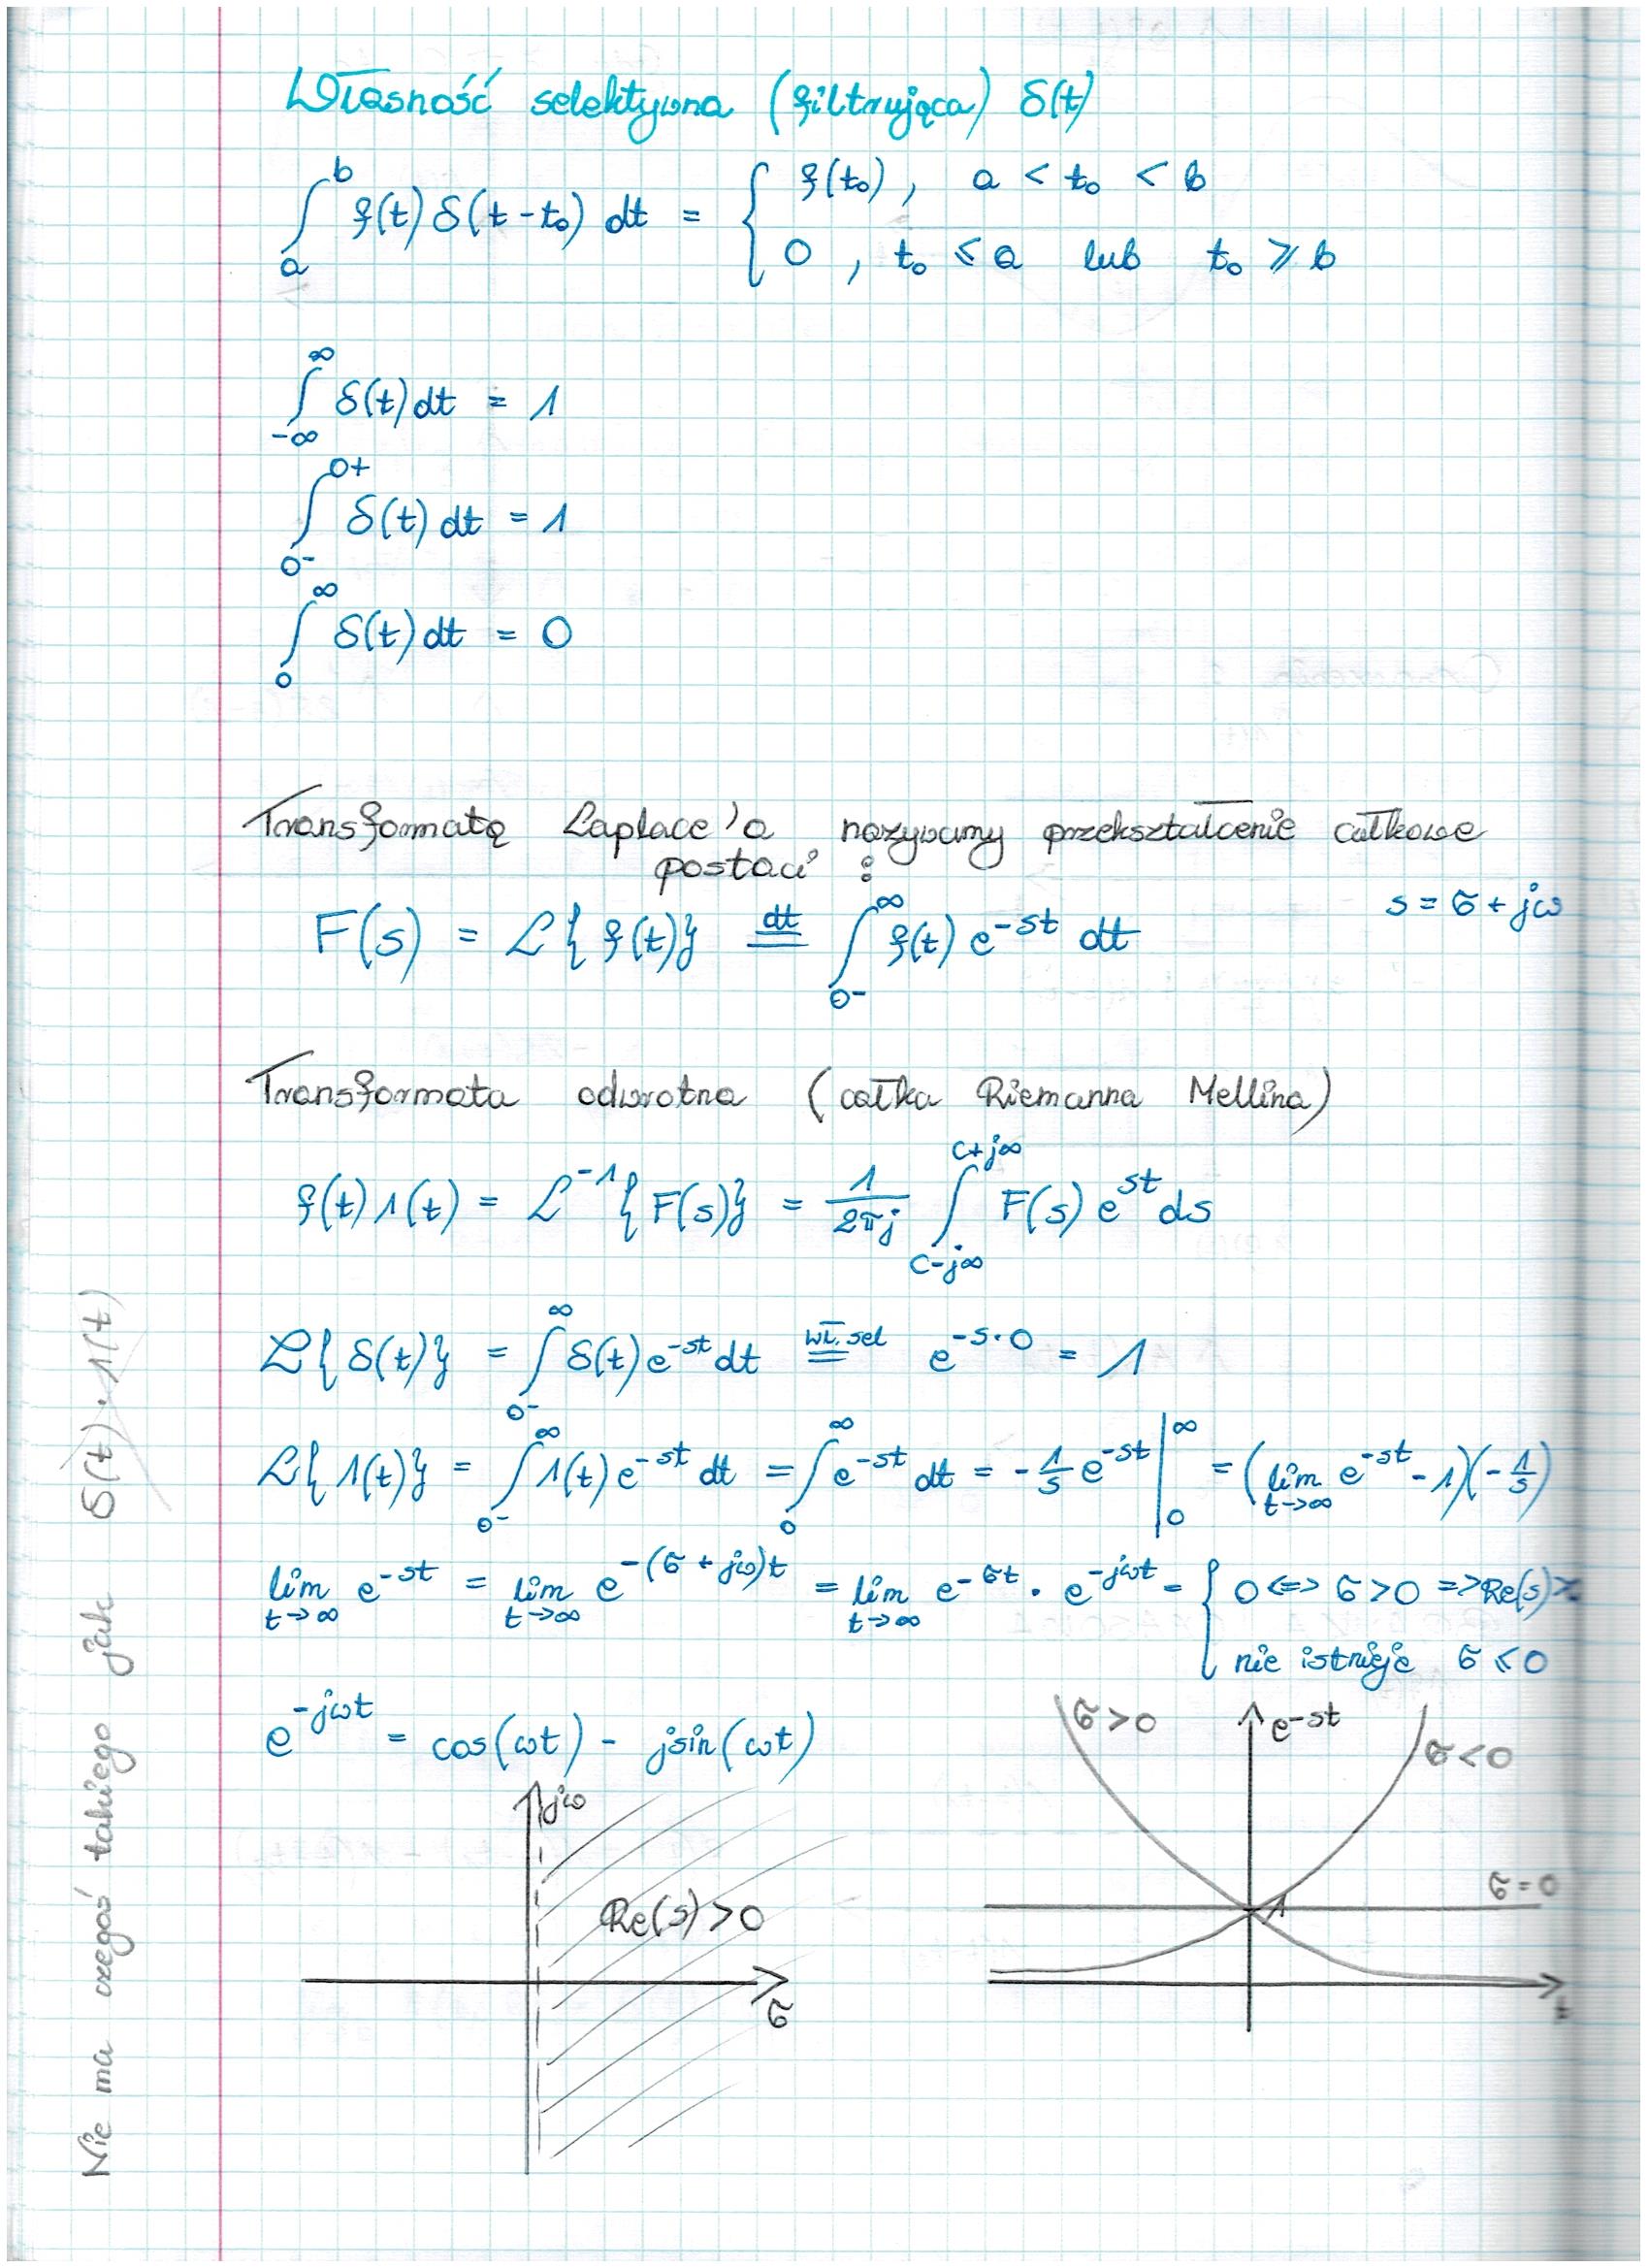 Własność selektywna (filtrująca) δ(t)
∫_a^b f(t) δ(t-t₀) dt = { f(t₀), a < t₀ < b
0, t₀ ≤ a lub t₀ ≥ b
∫_{-∞}^{∞} δ(t) dt = 1
∫_{0-}^{0+} δ(t) dt = 1
∫_0^∞ δ(t) dt = 0
Transformatą Laplace'a nazywamy przekształcenie całkowe
postaci :
s = σ + jω
F(s) = ℒ{f(t)} ≝ ∫_{0-}^{∞} f(t) e^{-st} dt
Transformata odwrotna (całka Riemanna Mellina)
f(t) 1(t) = ℒ^{-1}{F(s)} = 1/(2πj) ∫_{c-j∞}^{c+j∞} F(s) e^{st} ds
ℒ{δ(t)} = ∫_{0-}^{∞} δ(t) e^{-st} dt =(wł. sel) e^{-s·0} = 1
ℒ{1(t)} = ∫_{0-}^{∞} 1(t) e^{-st} dt = ∫_0^∞ e^{-st} dt = -1/s e^{-st} |_0^∞ = (lim_{t→∞} e^{-st} - 1)(-1/s)
lim_{t→∞} e^{-st} = lim_{t→∞} e^{-(σ + jω)t} = lim_{t→∞} e^{-σt} · e^{-jωt} = { 0 <=> σ > 0 => Re(s) >
nie istnieje σ ≤ 0
e^{-jωt} = cos(ωt) - jsin(ωt)
σ>0
e^{-st}
σ<0
jω
Re(s) > 0
σ
σ=0
1
t
Nie ma czegoś takiego jak δ(t)·1(t)